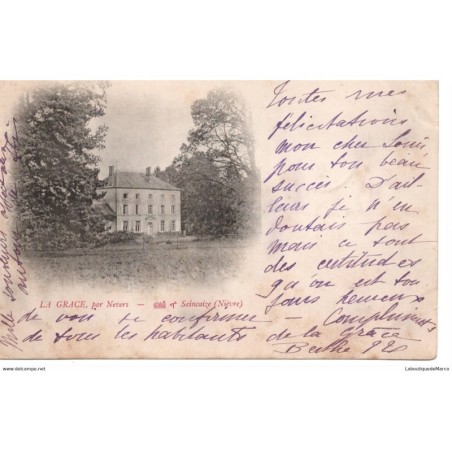 Toutes mes
félicitations
mon cher Louis
pour ton beau
succès. D'ail-
leurs je n'en
doutais pas
mais ce sont
des certitudes
qu'on est tou
jours heureux
de voir se confirmer - Compliments
de tous les habitants de la Grâce
Berthe
Mille
LA GRACE, par Nevers — Seincaize (Nièvre)
www.delcampe.net
LaboutiquedeMarco